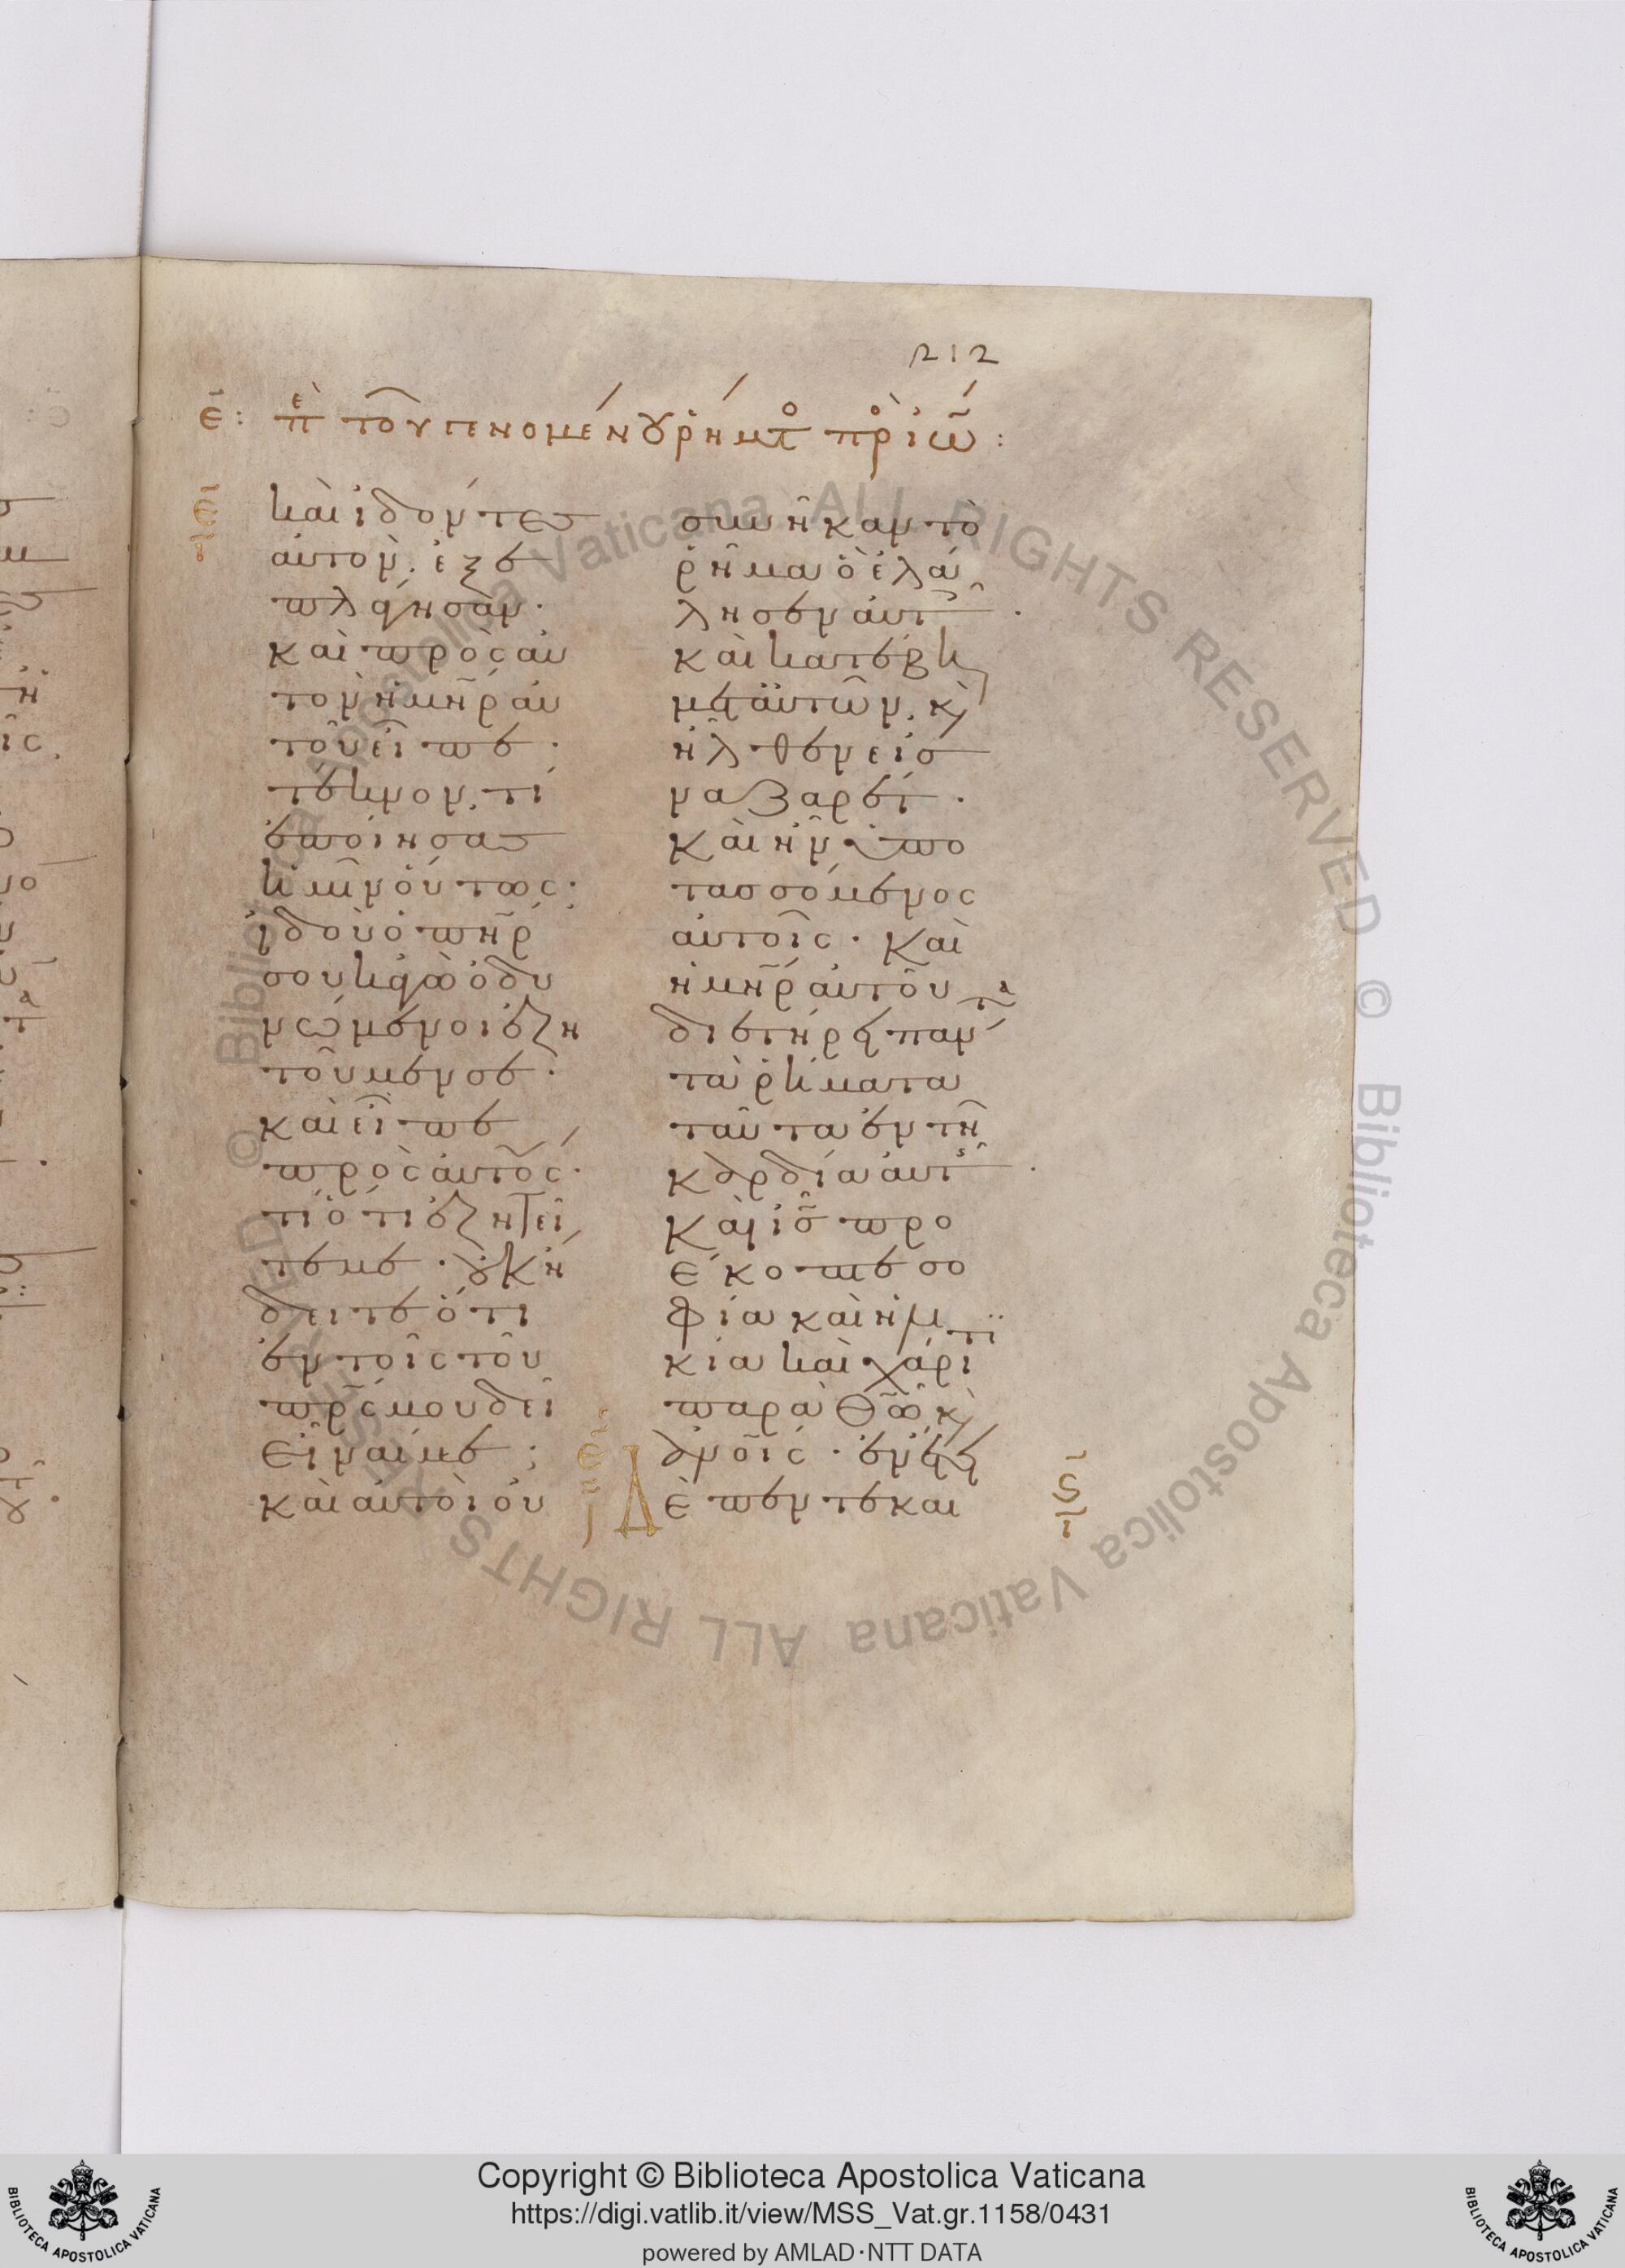 212
ε̄: πε τοῦ γενομένου ῥήματο πρὸ ἰω:
καὶ ἰδόντες
αὐτὸν. ἐξε
πλάγησαν.
καὶ πρὸς αὐ
τὸν ἡ μη̄ρ αὐ
τοῦ εἶπε.
τέκνον. τί
ἐποίησας
ἡμῖν οὕτως.
ἰδοὺ ὁ πη̄ρ
σου κἀγὼ ὀδυ
νώμενοι ἐζη
τοῦμεν σε.
καὶ εἶπε
πρὸς αὐτούς.
τί ὅτι ἐζητεῖ
τε με. οὐκ ᾔ
δειτε ὅτι
ἐν τοῖς τοῦ
πρ̄ς μου δεῖ
εἶναί με;
καὶ αὐτοὶ οὐ
συνῆκαν τὸ
ῥῆμα ὃ ἐλά
λησεν αὐτοῖς.
καὶ κατέβη
μετ' αὐτῶν. κ
ἦλθεν εἰς
ναζαρέτ.
καὶ ἦν ὑπο
τασσόμενος
αὐτοῖς. καὶ
ἡ μη̄ρ αὐτοῦ
διετήρει πάντα
τὰ ῥήματα
ταῦτα ἐν τῇ
καρδία αὐτῆς.
καὶ ἰς̄ προ
έκοπτε σο
φία καὶ ἡλι
κία καὶ χάριτι
παρὰ θω̄ κ
ἀνοῖς. ἐν ἔτει
Δ ὲ πεντεκαι
Copyright © Biblioteca Apostolica Vaticana
https://digi.vatlib.it/view/MSS_Vat.gr.1158/0431
powered by AMLAD·NTT DATA
© Biblioteca Apostolica Vaticana ALL RIGHTS RESERVED © Biblioteca Apostolica Vaticana ALL RIGHTS RESERVED
BIBLIOTECA APOSTOLICA VATICANA
BIBLIOTECA APOSTOLICA VATICANA